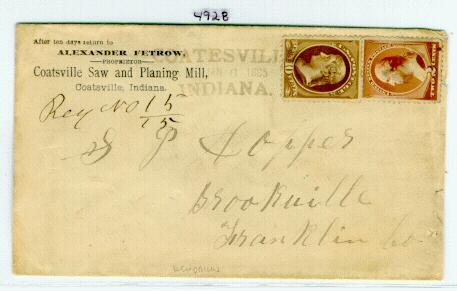 4928
After ten days return to
ALEXANDER FETROW,
PROPRIETOR
Coatsville Saw and Planing Mill,
Coatsville, Indiana.
COATESVILLE
1885
INDIANA.
Reg No 15
15
S P Copper
Brookville
Franklin Co